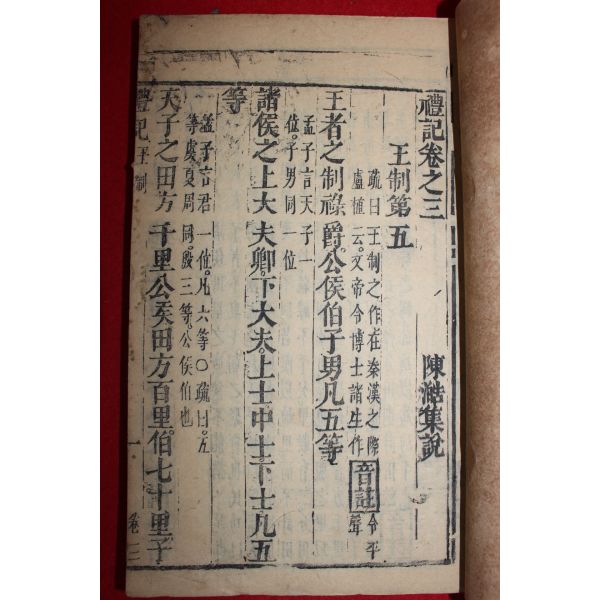 禮記卷之三
陳澔集說
王制第五
疏曰王制之作在秦漢之際
盧植云文帝令博士諸生作
音註
令平
聲
王者之制祿爵。公侯伯子男凡五等
孟子言天子一
位。子男同一位
諸侯之上大夫卿。下大夫。上士中士下士凡五
等
孟子言君一位。凡六等○疏曰。五
等虞夏周同。殷三等。公侯伯也
天子之田方千里公侯田方百里。伯七十里。子
禮記
王制
一
卷三